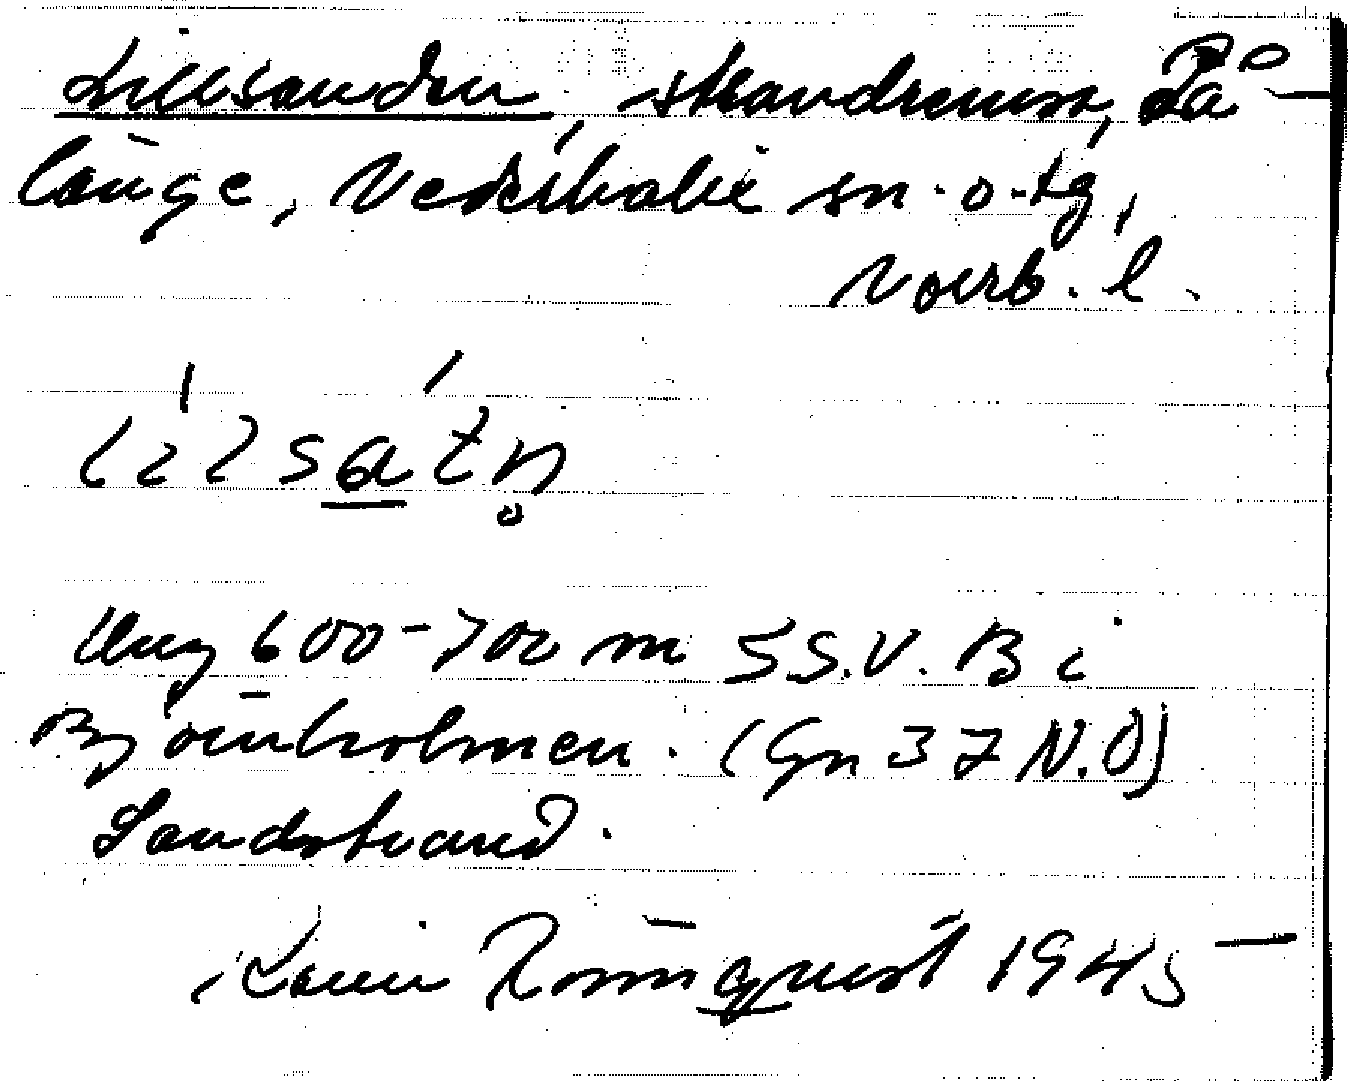 Lillsanden, strandremsa, På-
länge, Nederkalix sn. o. tg,
Norrb. l.
Ung 600-700 m SSV. B i
Björnholmen. (Gn 37 N.O)
Sandstrand.
Karin Rönnquist 1945